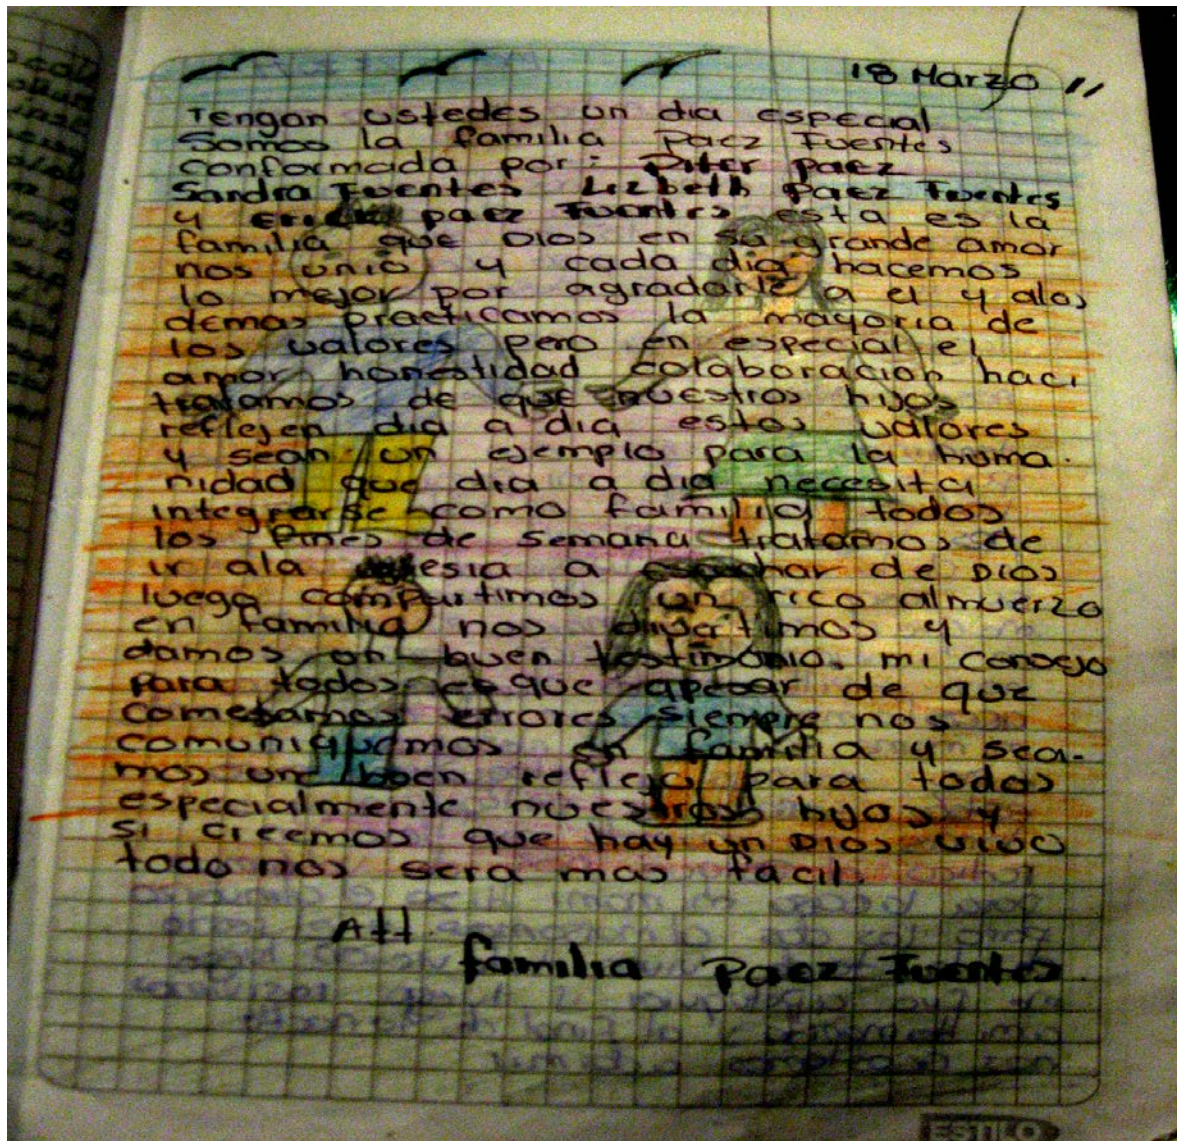 18 Marzo 11
Tengan ustedes un dia especial
Somos la familia Paez Fuentes
conformada por: Piter paez
Sandra Fuentes Lizbeth Paez Fuentes
y Erick paez Fuentes esta es la
familia que Dios en su grande amor
nos unio y cada dia hacemos
lo mejor por agradarle a el y alos
demas practicamos la mayoria de
los valores pero en especial el
amor honestidad colaboracion haci
tratamos de que nuestros hijos
reflejen dia a dia estos valores
y sean un ejemplo para la huma-
nidad que dia a dia necesita
integrarse como familia todos
los fines de semana tratamos de
ir ala iglesia a escuchar de DIOS
luego compartimos un rico almuerzo
en familia nos divertimos y
damos un buen testimonio. mi consejo
para todos es que apesar de que
cometamos errores siempre nos
comuniquemos en familia y sea-
mos un buen reflejo para todos
especialmente nuestros hijos y
si creemos que hay un DIOS vivo
todo nos sera mas facil.
Att
familia Paez Fuentes
ESTILO